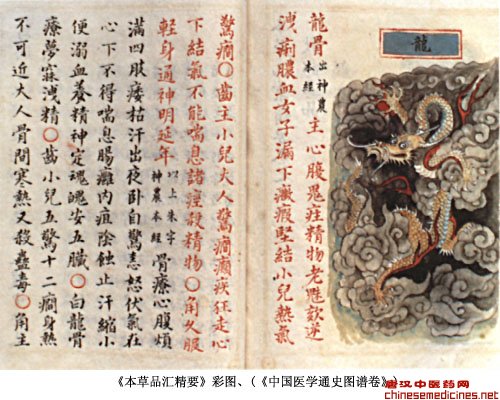 龍
龍骨出神農本經主心腹鬼疰精物老魅欬逆
洩痢膿血女子漏下癥瘕堅結小兒熱氣
驚癇○齒主小兒大人驚癇癲疾狂走心
下結氣不能喘息諸痙殺精物○角久服
輕身通神明延年以上朱字神農本經骨療心腹煩
滿四肢痿枯汗出夜臥自驚恚怒伏氣在
心下不得喘息腸癰內疽陰蝕止汗縮小
便溺血養精神定魂魄安五臟○白龍骨
療夢寐洩精○齒小兒五驚十二癇身熱
不可近大人骨間寒熱又殺蠱毒○角主
《本草品汇精要》彩图、(《中国医学通史图谱卷》)
唐汉中医药网
www.chinesemedicines.net